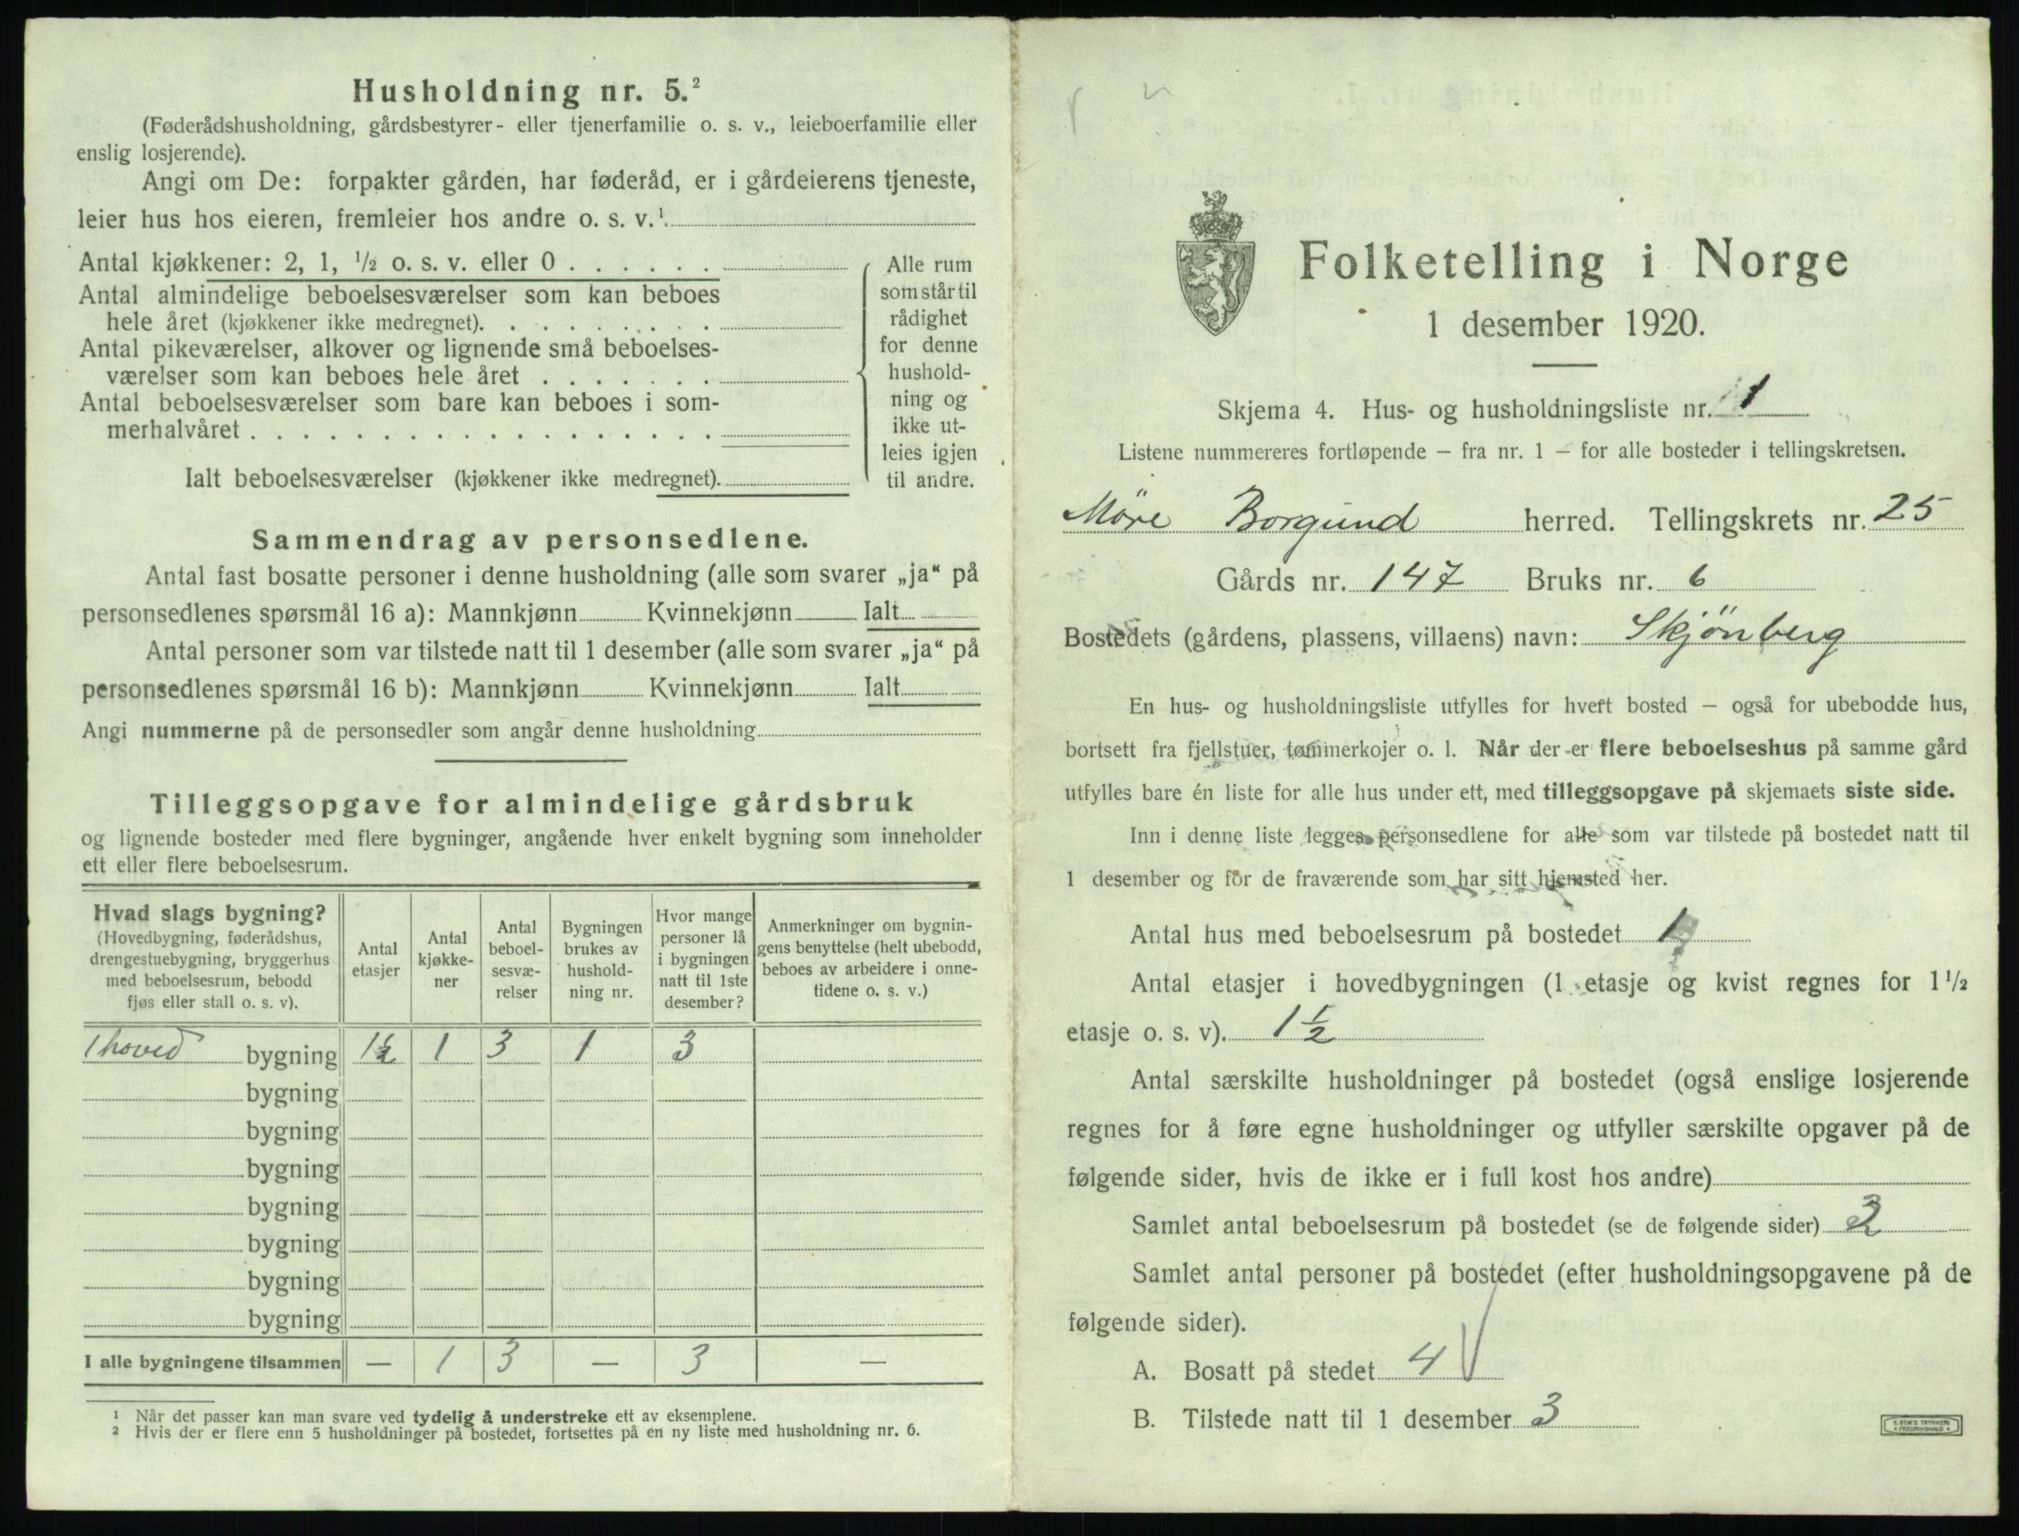 Husholdning nr. 5.²
(Føderådshusholdning, gårdsbestyrer- eller tjenerfamilie o. s. v., leieboerfamilie eller
enslig losjerende).
Angi om De: forpakter gården, har føderåd, er i gårdeierens tjeneste,
leier hus hos eieren, fremleier hos andre o. s. v.¹
Antal kjøkkener: 2, 1, ½ o. s. v. eller 0
Antal almindelige beboelsesværelser som kan beboes
hele året (kjøkkener ikke medregnet).
Antal pikeværelser, alkover og lignende små beboelses-
værelser som kan beboes hele året
Antal beboelsesværelser som bare kan beboes i som-
merhalvåret
Ialt beboelsesværelser (kjøkkener ikke medregnet).
Alle rum
som står til
rådighet
for denne
hushold-
ning og
ikke ut-
leies igjen
til andre.
Sammendrag av personsedlene.
Antal fast bosatte personer i denne husholdning (alle som svarer „ja“ på
personsedlenes spørsmål 16 a): Mannkjønn Kvinnekjønn Ialt
Antal personer som var tilstede natt til 1 desember (alle som svarer „ja“ på
personsedlenes spørsmål 16 b): Mannkjønn Kvinnekjønn Ialt
Angi nummerne på de personsedler som angår denne husholdning
Tilleggsopgave for almindelige gårdsbruk
og lignende bosteder med flere bygninger, angående hver enkelt bygning som inneholder
ett eller flere beboelsesrum.
Hvad slags bygning?
(Hovedbygning, føderådshus,
drengestuebygning, bryggerhus
med beboelsesrum, bebodd
fjøs eller stall o. s. v).
Antal
etasjer
Antal
kjøkke-
ner
Antal
beboel-
sesvæ-
relser
Bygningen
brukes av
hushold-
ning nr.
Hvor mange
personer lå
i bygningen
natt til 1ste
desember?
Anmerkninger om bygnin-
gens benyttelse (helt ubebodd,
beboes av arbeidere i onne-
tidene o. s. v.)
1 hoved bygning 1½ 1 3 1 3
bygning
bygning
bygning
bygning
bygning
bygning
bygning
I alle bygningene tilsammen — 1 3 — 3 —
¹ Når det passer kan man svare ved tydelig å understreke ett av eksemplene.
² Hvis der er flere enn 5 husholdninger på bostedet, fortsettes på en ny liste med husholdning nr. 6.
Folketelling i Norge
1 desember 1920.
Skjema 4. Hus- og husholdningsliste nr. 1
Listene nummereres fortløpende – fra nr. 1 – for alle bosteder i tellingskretsen.
Möre Borgund herred. Tellingskrets nr. 25
Gårds nr. 147 Bruks nr. 6
Bostedets (gårdens, plassens, villaens) navn: Skjönberg
En hus- og husholdningsliste utfylles for hvert bosted – også for ubebodde hus,
bortsett fra fjellstuer, tømmerkojer o. l. Når der er flere beboelseshus på samme gård
utfylles bare én liste for alle hus under ett, med tilleggsopgave på skjemaets siste side.
Inn i denne liste legges personsedlene for alle som var tilstede på bostedet natt til
1 desember og for de fraværende som har sitt hjemsted her.
Antal hus med beboelsesrum på bostedet 1
Antal etasjer i hovedbygningen (1 etasje og kvist regnes for 1½
etasje o. s. v). 1½
Antal særskilte husholdninger på bostedet (også enslige losjerende
regnes for å føre egne husholdninger og utfyller særskilte opgaver på de
følgende sider, hvis de ikke er i full kost hos andre)
Samlet antal beboelsesrum på bostedet (se de følgende sider) 3
Samlet antal personer på bostedet (efter husholdningsopgavene på de
følgende sider).
A. Bosatt på stedet 4
B. Tilstede natt til 1 desember 3